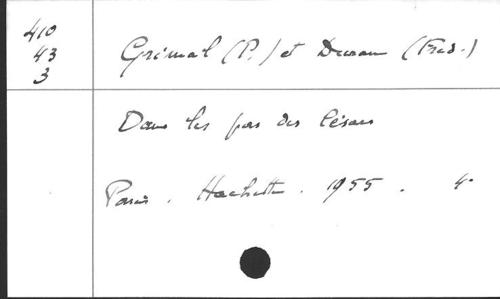 410
43
3
Grimal (P.) et Duran (Fréd.)
Dans les pas des Césars
Paris. Hachette. 1955. 4°